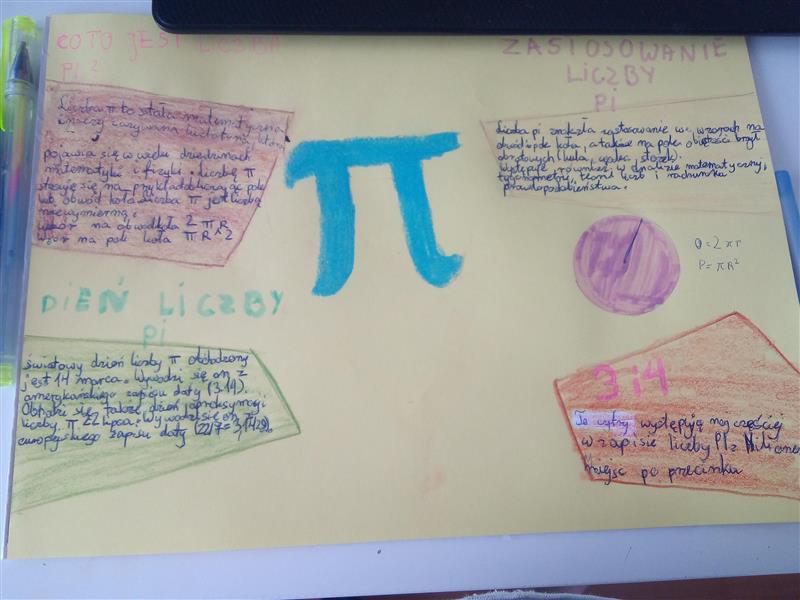 CO TO JEST LICZBA
PI ?
Liczba π to stała matematyczna
inaczej nazywana ludolfiną, która
pojawia się w wielu dziedzinach
matematyki i fizyki. Liczbę π
stosuje się na przykład licząc pole
lub obwód koła. Liczba π jest liczbą
niewymierną.
wzór na obwód koła 2 π R
wzór na pole koła π R^2
π
ZASTOSOWANIE
LICZBY
PI
Liczba pi znalazła zastosowanie we wzorach na
obwód i pole koła, a także na pole i objętości brył
obrotowych (kula, walec, stożek).
Występuje również w analizie matematycznej,
trygonometrii, teorii liczb i rachunku
prawdopodobieństwa.
O = 2 π r
P = π R²
DIEŃ LICZBY
PI
światowy dzień liczby π obchodzony
jest 14 marca. Wywodzi się on z
amerykańskiego zapisu daty (3.14).
Obchodzi się także dzień aproksymacji
liczby π 22 lipca. Wywodzi się on z
europejskiego zapisu daty (22/7=3,1428).
3 i 4
Te cyfry występują najczęściej
w zapisie liczby PI z
miejsc po przecinku